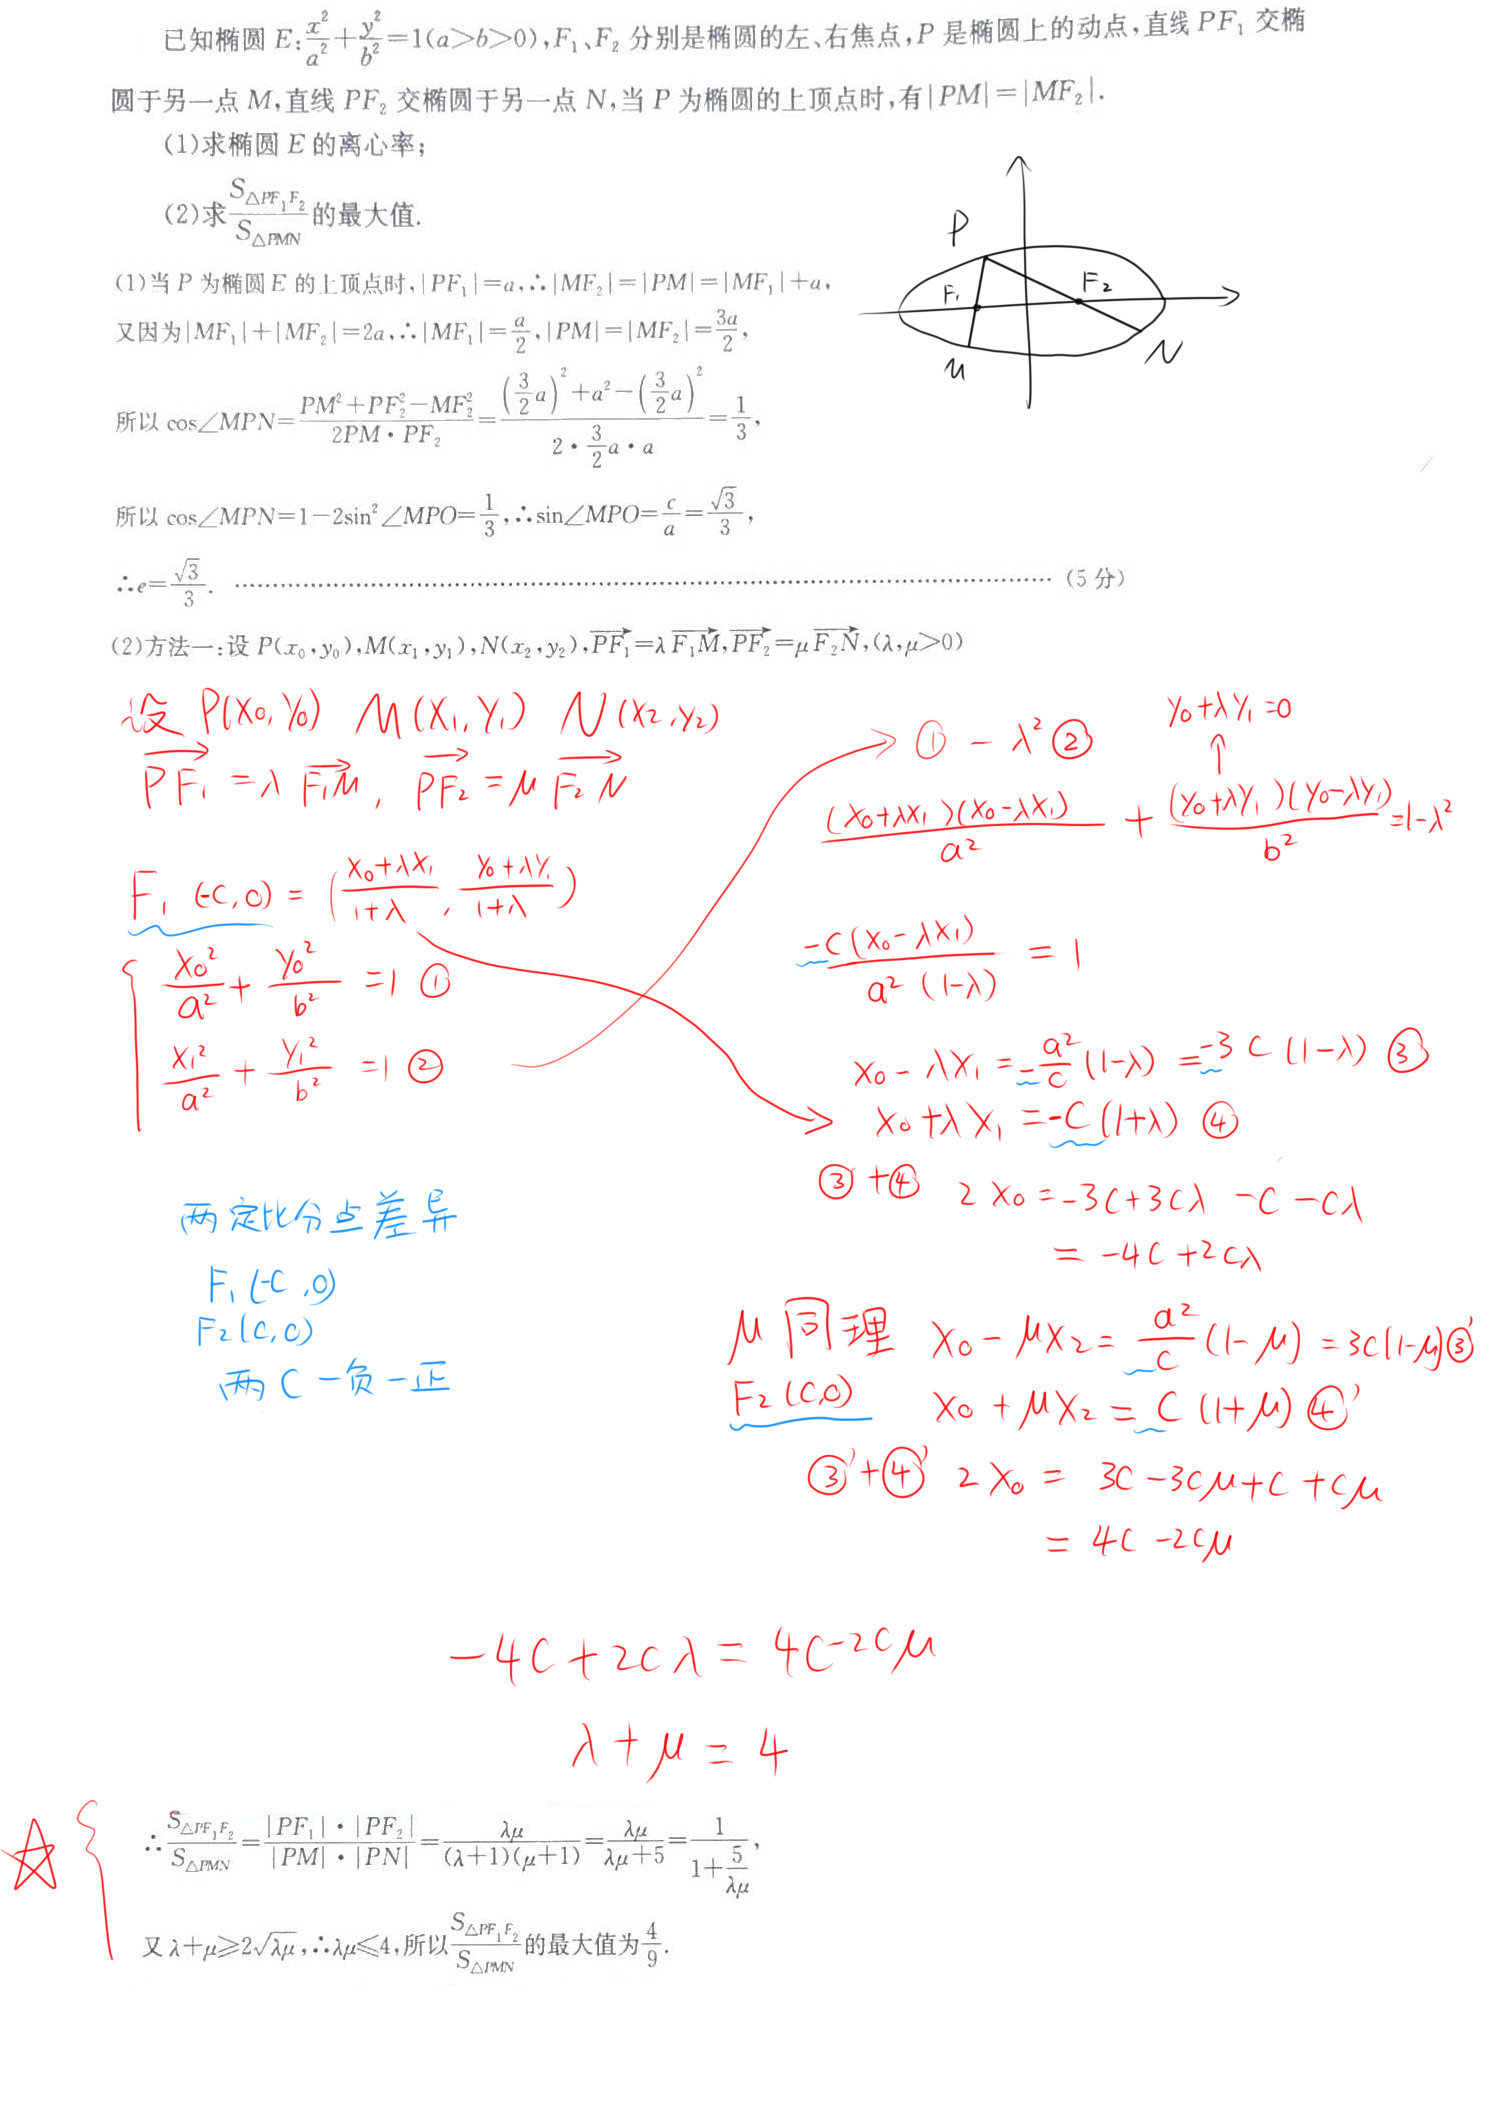 已知椭圆 E:x²/a²+y²/b²=1(a>b>0),F₁、F₂ 分别是椭圆的左、右焦点,P 是椭圆上的动点,直线 PF₁ 交椭
圆于另一点 M,直线 PF₂ 交椭圆于另一点 N,当 P 为椭圆的上顶点时,有|PM|=|MF₂|.
(1)求椭圆 E 的离心率;
(2)求 S△PF₁F₂/S△PMN 的最大值.
P
F₁
F₂
M
N
(1)当 P 为椭圆 E 的上顶点时,|PF₁|=a,∴|MF₂|=|PM|=|MF₁|+a,
又因为|MF₁|+|MF₂|=2a,∴|MF₁|=a/2,|PM|=|MF₂|=3a/2,
所以 cos∠MPN=(PM²+PF₂²−MF₂²)/(2PM·PF₂)=((3/2 a)²+a²−(3/2 a)²)/(2·3/2 a·a)=1/3,
所以 cos∠MPN=1−2sin²∠MPO=1/3,∴sin∠MPO=c/a=√3/3,
∴e=√3/3. …………………………………………………………………… (5 分)
(2)方法一:设 P(x₀,y₀),M(x₁,y₁),N(x₂,y₂),PF₁→=λF₁M→,PF₂→=μF₂N→,(λ,μ>0)
设 P(x₀,y₀) M(x₁,y₁) N(x₂,y₂)
PF₁→=λF₁M→, PF₂→=μF₂N→
F₁(-c,0)=((x₀+λx₁)/(1+λ), (y₀+λy₁)/(1+λ))
x₀²/a²+y₀²/b²=1 ①
x₁²/a²+y₁²/b²=1 ②
① − λ²②
y₀+λy₁=0
↑
(x₀+λx₁)(x₀−λx₁)/a² + (y₀+λy₁)(y₀−λy₁)/b² =1−λ²
−c(x₀−λx₁)/(a²(1−λ)) = 1
x₀−λx₁=−a²/c(1−λ)=−3c(1−λ) ③
x₀+λx₁=−c(1+λ) ④
③+④ 2x₀=−3c+3cλ−c−cλ
=−4c+2cλ
两定比分点差异
F₁(-c,0)
F₂(c,0)
两c一负一正
μ同理 x₀−μx₂=a²/c(1−μ)=3c(1−μ)③'
F₂(c,0) x₀+μx₂=c(1+μ)④'
③'+④' 2x₀=3c−3cμ+c+cμ
=4c−2cμ
−4c+2cλ=4c−2cμ
λ+μ=4
∴S△PF₁F₂/S△PMN=|PF₁|·|PF₂|/(|PM|·|PN|)=λμ/((λ+1)(μ+1))=λμ/(λμ+5)=1/(1+5/(λμ)),
又 λ+μ≥2√λμ,∴λμ≤4,所以 S△PF₁F₂/S△PMN 的最大值为 4/9.